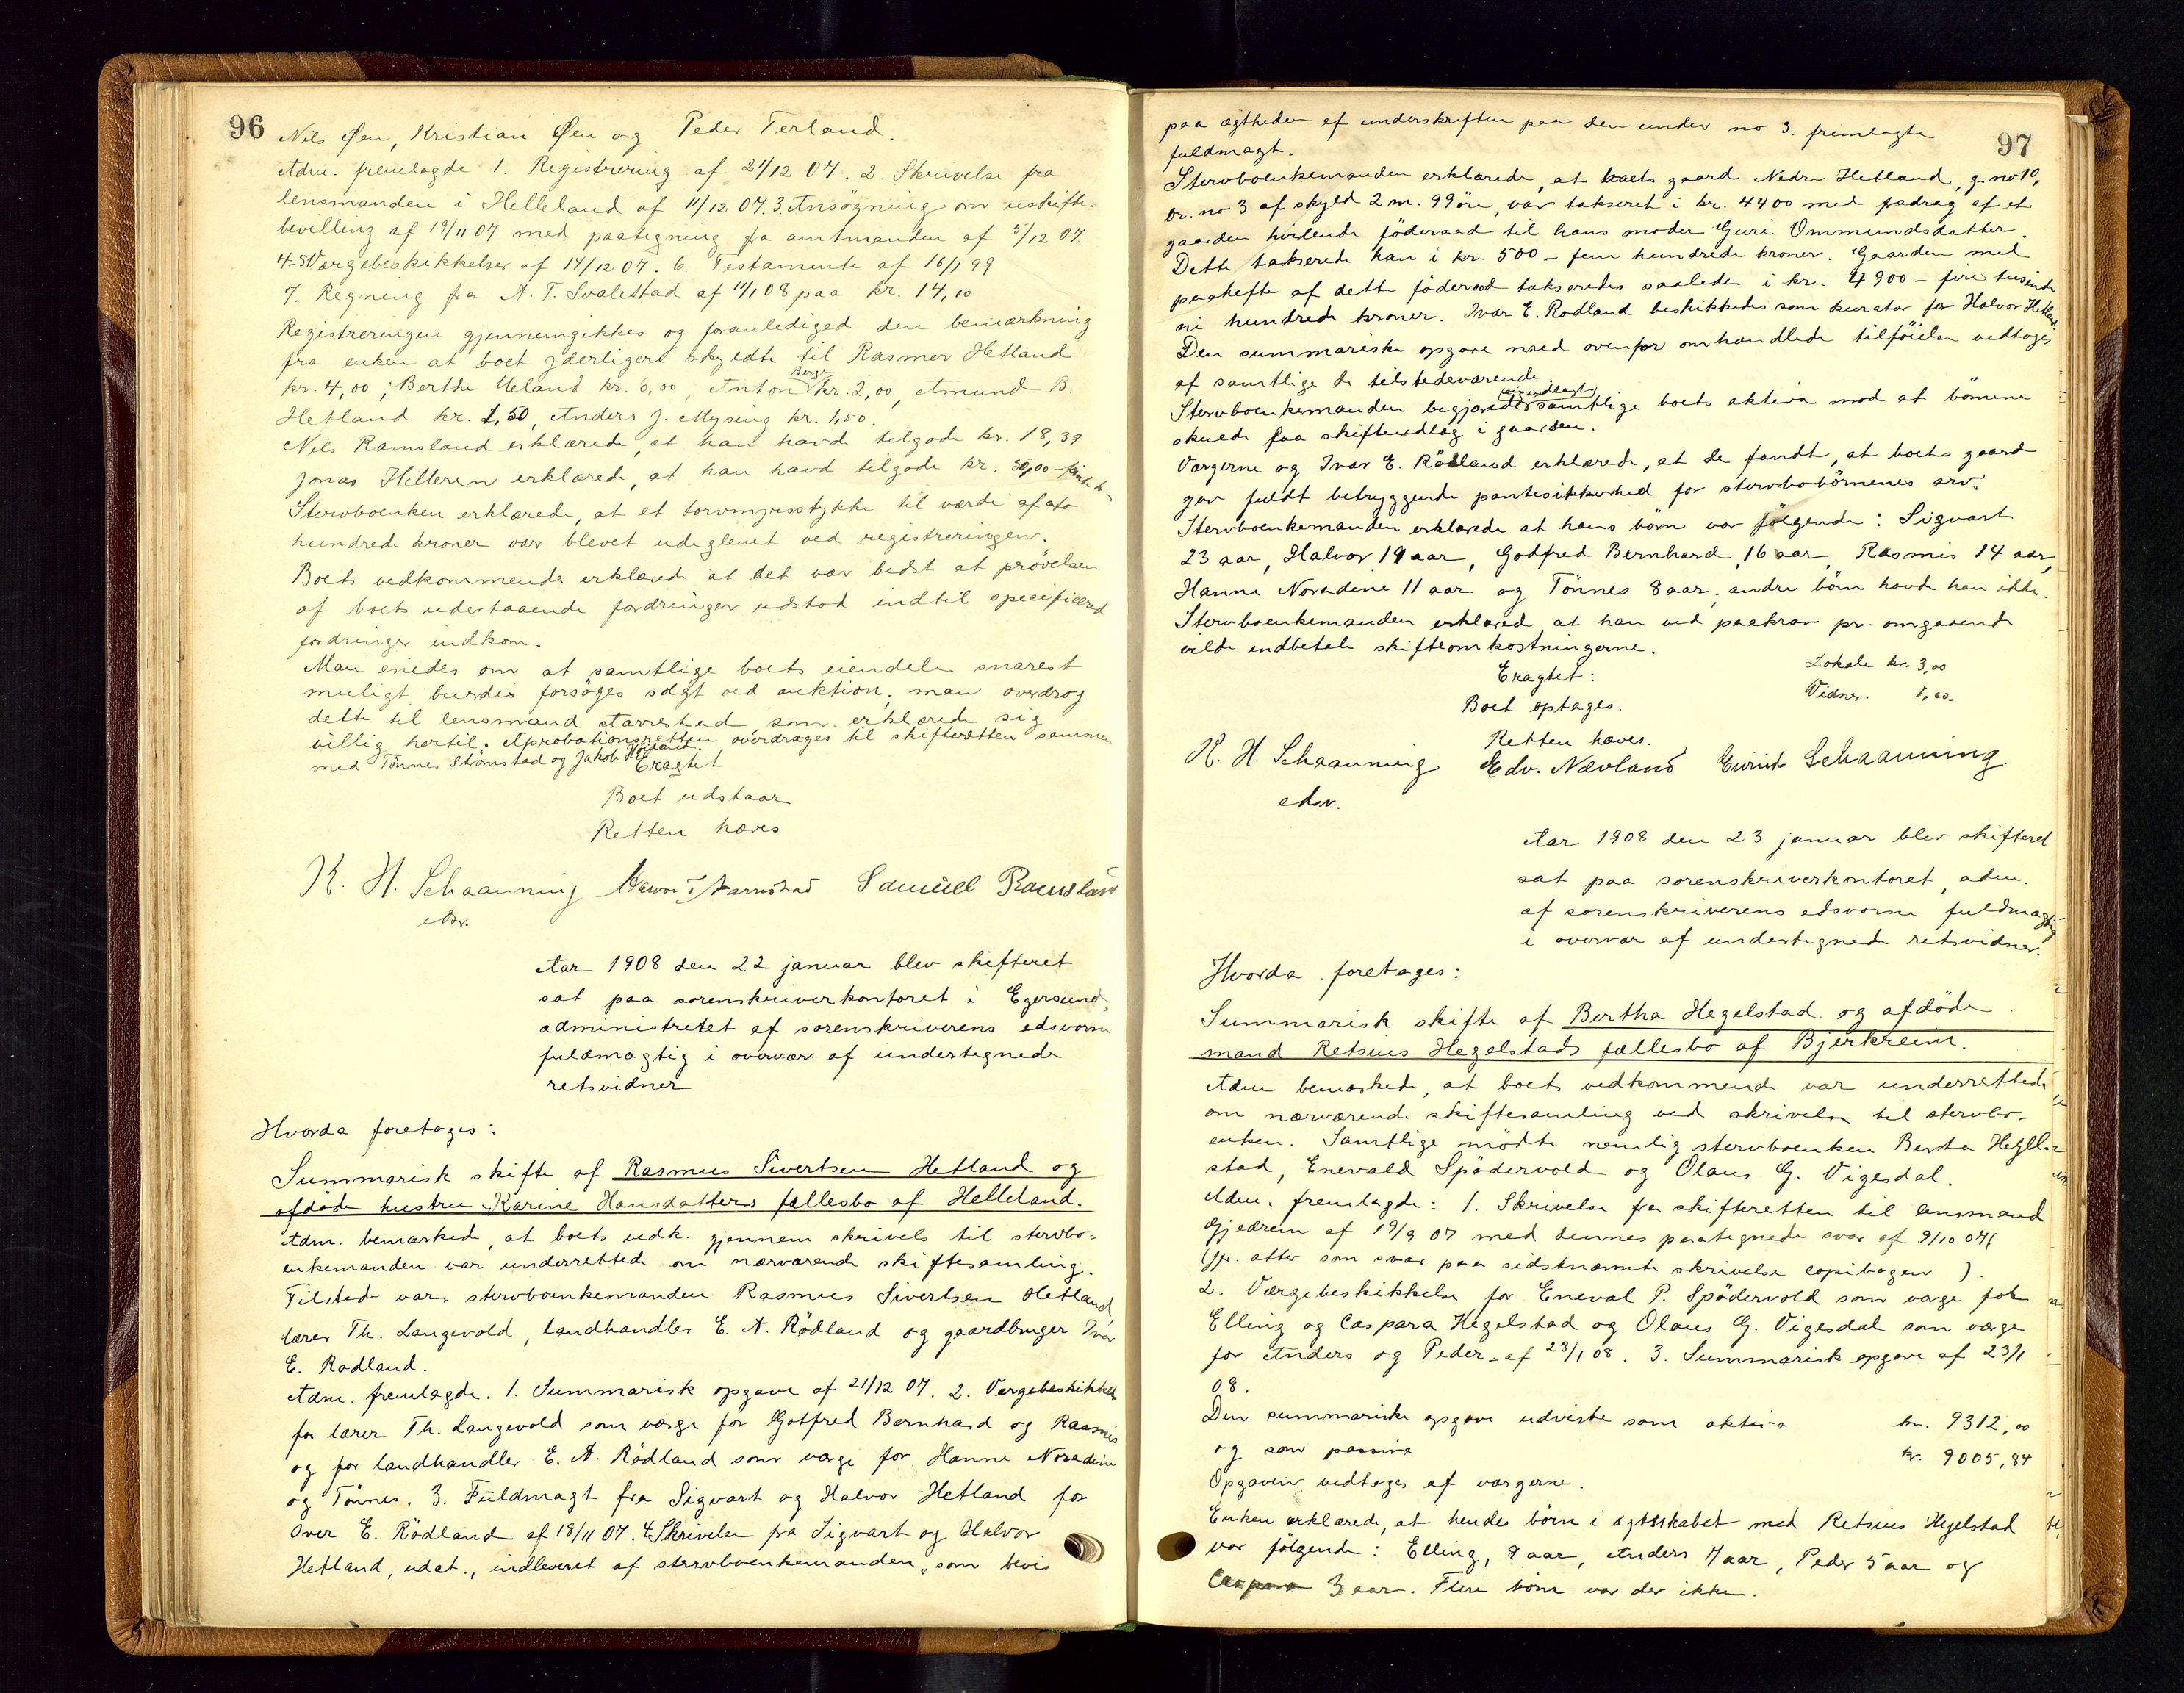 96
Nils Øen, Kristian Øen og Peder Terland.
Adm. fremlagde 1. Registrering af 21/12 07. 2. Skrivelse fra
lensmanden i Helleland af 11/12 07. 3. Ansøgning om uskifte-
bevilling af 19/11 07 med paategning fra amtmanden af 5/12 07.
4-5 Værgebeskikkelser af 14/12 07. 6. Testamente af 16/1 99
7. Regning fra A. T. Svalestad af 11/1 08 paa kr. 14,00
Registreringen gjennemgikkes og foranlediged den bemærkning
fra enken at boet yderligere skyldte til Rasmus Hetland
kr. 4,00; Berthe Ueland kr. 6,00, Anton Berge kr. 2,00, Amund B.
Hetland kr. 1,50, Anders J. Mysing kr. 1,50.
Nils Ramsland erklærede, at han havde tilgode kr. 18,39
Jonas Helleren erklærede, at han havde tilgode kr. 50,00
Stervboenken erklærede, at et torvmyrsstykke til værdi af
hundrede kroner var blevet udeglemt ved registreringen.
Boets vedkommende erklæred at det var bedst at prøvelsen
af boets udestaaende fordringer udstod indtil specificered
fordringer indkom.
Man enedes om at samtlige boets eiendele snarest
muligt burde forsøges solgt ved auktion; man overdrog
dette til lensmand Aarrestad som erklærede sig
villig hertil. Aprobationsretten overdrages til skifteretten sammen
med Tønnes Strømstad og Jakob Høiland.
Eragtet
Boet udstaar
Retten hæves
K. H. Schaanning Samuel Ramsland
edsv.
Aar 1908 den 22 januar blev skifteret
sat paa sorenskriverkontoret i Egersund,
administreret af sorenskriverens edsvorne
fuldmægtig i overvær af undertegnede
retsvidner
Hvorda foretoges:
Summarisk skifte af Rasmus Sivertsen Hetland og
afdøde hustru Karine Hansdatters fællesbo af Helleland.
Adm. bemærkede, at boets vedk. gjennem skrivels til stervbo-
enkemanden var underrettede om nærværende skiftesamling.
Tilstede vare stervboenkemanden Rasmus Sivertsen Hetland,
lærer Th. Langevold, landhandler E. A. Rödland og gaardbruger Ivar
E. Rødland.
Adm. fremlagde. 1. Summarisk opgave af 21/12 07. 2. Værgebeskikkelse
for lærer Th. Langevold som værge for Gotfred Bernhard og Rasmis
og for landhandler E. A. Rödland som værge for Hanne Noradine
og Tönnes. 3. Fuldmagt fra Sigvart og Halvor Hetland for
Iver E. Rödland af 18/11 07. 4. Skrivelse fra Sigvart og Halvor
Hetland, udat., indleveret af stervboenkemanden, som bevis
97
paa ægtheden af underskriften paa den under no 3. fremlagte
fuldmagt.
Stervboenkemanden erklærede, at boets gaard Nedre Hetland, g. no 10,
br. no 3 af skyld 2 m. 99 öre, var takseret i kr. 4400 med fradrag af et
gaarden hvilende föderaad til hans moder Guri Ommundsdatter.
Dette takserede han i kr. 500 - fem hundrede kroner. Gaarden med
paahefte af dette föderaad takseredes saaledes i kr. 4900 - fire tusinde
ni hundrede kroner. Ivar E. Rødland beskikkedes som kurator for Halvor Hetland.
Den summariske opgave med ovenfor omhandlede tilföielse vedtoges
af samtlige de tilstedeværende
Stervboenkemanden begjærede sig udlagt samtlige boets aktiva mod at börnene
skulde faa skifteudlæg i gaarden.
Værgerne og Ivar E. Rödland erklærede, at de fandt, at boets gaard
gav fuldt betryggende pantesikkerhed for stervbobörnenes arv.
Stervboenkemanden erklærede at hans börn var fölgende: Sigvart
23 aar, Halvor 19 aar, Godfred Bernhard, 16 aar, Rasmis 14 aar,
Hanne Noradine 11 aar og Tönnes 8 aar; andre börn havde han ikke.
Stervboenkemanden erklæred at han ved paakrav pr. omgaaende
vilde indbetale skifteomkostningerne.
Eragtet: Lokale kr. 3,00
Boet optages. Vidner. 1,60.
Retten hæves.
K. H. Schaanning Edv. Nævland Eivind Schaanning.
edsv.
Aar 1908 den 23 januar blev skifteret
sat paa sorenskriverkontoret, adm.
af sorenskriverens edsvorne fuldmægtig
i overvær af undertegnede retsvidner.
Hvorda foretoges:
Summarisk skifte af Bertha Hegelstad og afdöde
mand Retsius Hegelstads fællesbo af Bjerkreim.
Adm bemærkede, at boets vedkommende var underrettede
om nærværende skiftesamling ved skrivelse til stervbo-
enken. Samtlige mödte nemlig stervboenken Berta Hegel-
stad, Enevald Spödervold og Olaus G. Vigesdal.
Adm. fremlagde: 1. Skrivelse fra skifteretten til lensmand
Gjedrem af 19/9 07 med dennes paategnede svar af 9/10 07
(jfr. atter som svar paa sidstnævnte skrivelse copibogen ).
2. Værgebeskikkelse for Eneval P. Spödervold som værge for
Elling og Caspara Hegelstad og Olaus G. Vigesdal som værge
for Anders og Peder af 23/1 08. 3. Summarisk opgave af 23/1
08.
Den summariske opgave udviste som aktiva kr. 9312,00
og som passiva kr. 9005,84
Opgaven vedtoges af værgerne.
Enken erklærede, at hendes börn i ægteskabet med Retsius Hegelstad
var fölgende: Elling, 9 aar, Anders 7 aar, Peder 5 aar og
Caspara 3 aar. Flere börn var der ikke.